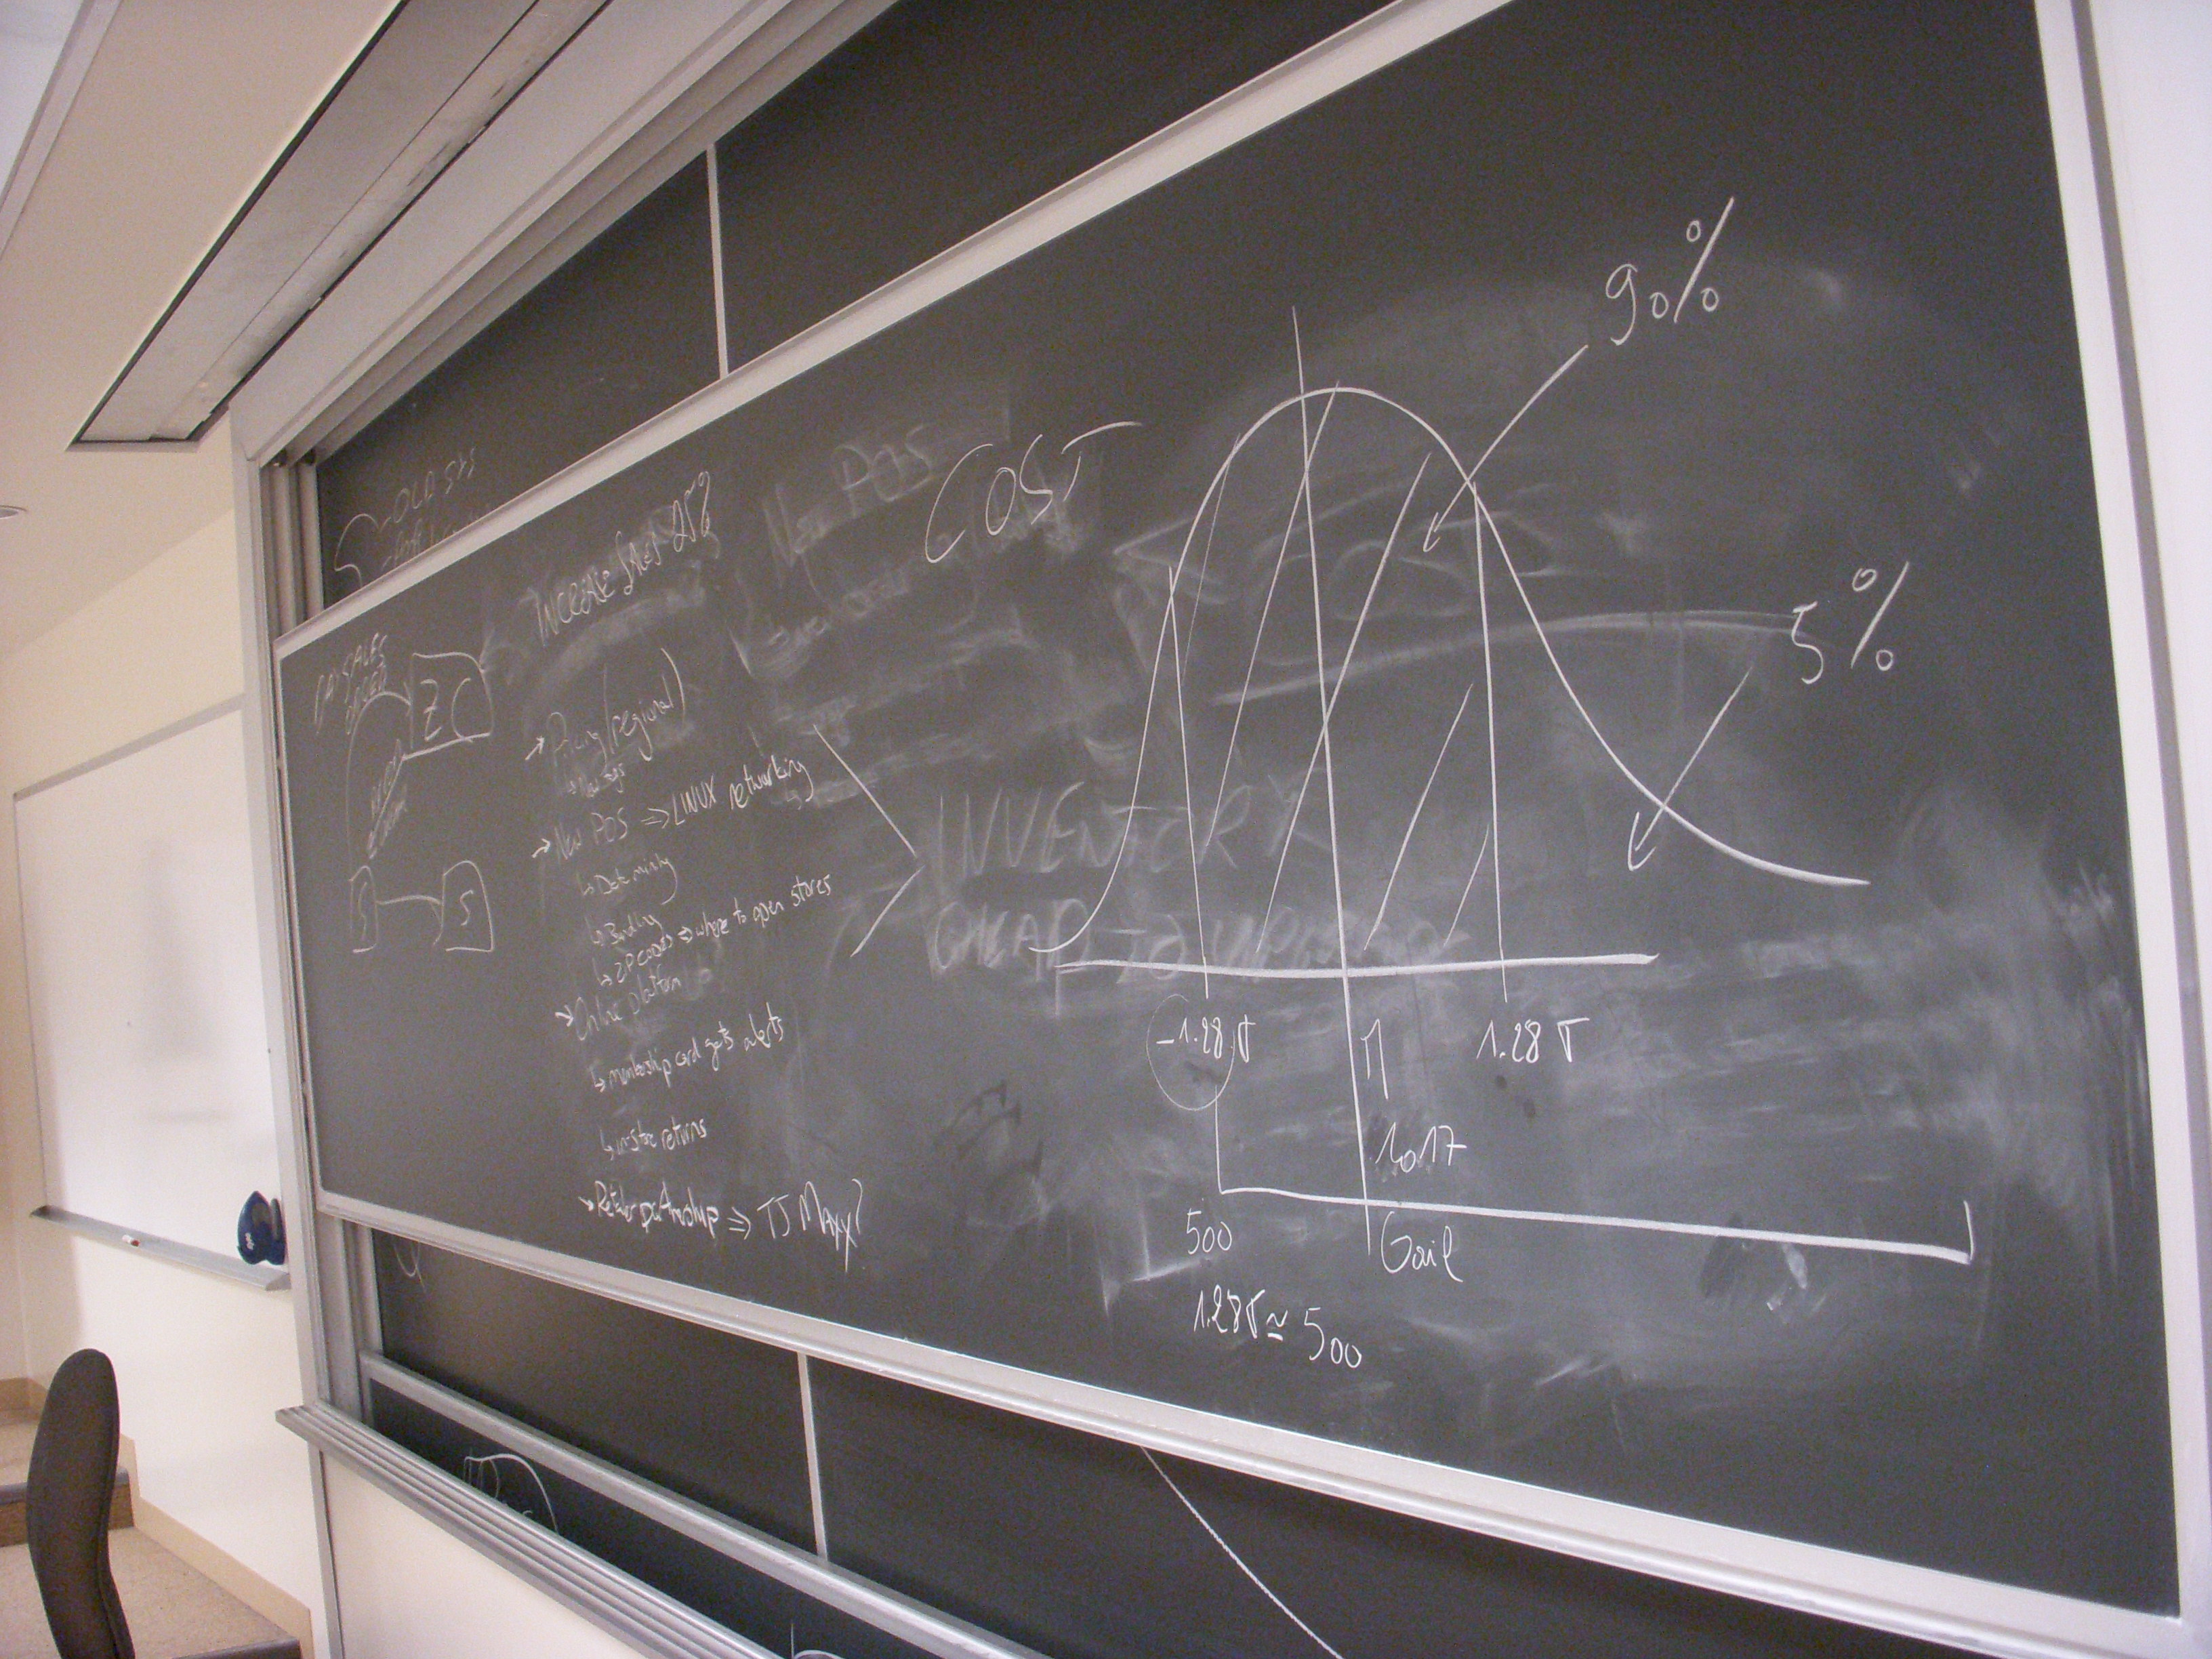 OLD SYS
SALES
ZC
S
S
INCREASE SALES 25%
→ Pricing (regional)
→ New POS ⇒ LINUX networking
↳ Data mining
↳ Bundling
↳ ZIP CODES ⇒ where to open stores
→ Online platform
↳ membership card gets alerts
↳ in-store returns
→ Retailer partnership ⇒ TJ Maxx?
New POS
COST
INVENTORY
CHEAP TO
90%
5%
-1.28 σ
1.28 σ
1017
500
Gail
1.28σ ≃ 500